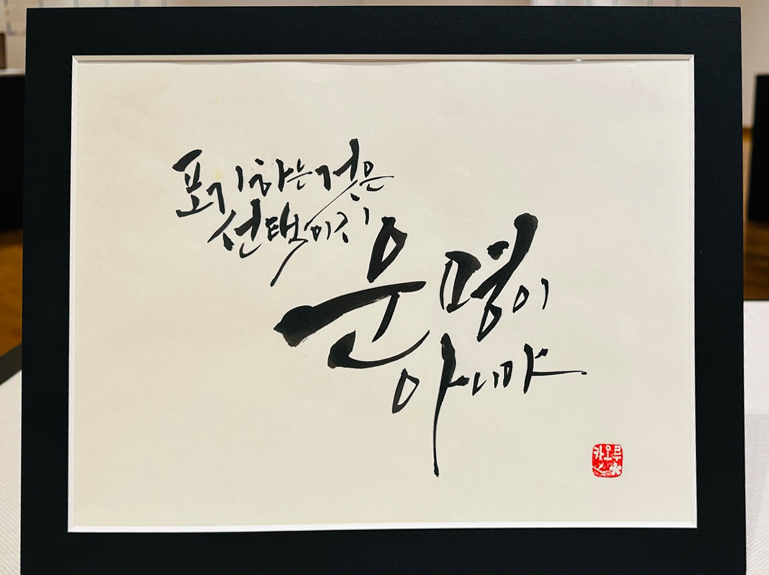 포기하는것은
선택이지
운명이
아니야
카오루